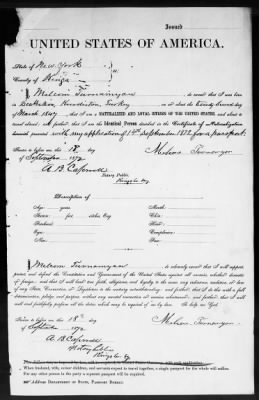 Issued
UNITED STATES OF AMERICA.
State of New York
County of Kings
I Melcon Turnamyan do swear that I was born
in Kurdistan, Turkey on or about the Twenty Second day
of March 1847; that I am a NATURALIZED AND LOYAL CITIZEN OF THE UNITED STATES, and about
to travel abroad; & further that I am the Identical Person described in the Certificate of Naturalization
herewith presented with my application of 14th September 1872 for a passport.
Sworn to before me this 18 day
of September 1872
A. B. Notary Public
Kings Co
Description of
Age: years Mouth:
Stature: feet inches Eng. Chin:
Forehead: Hair:
Eyes: Complexion:
Nose: Face:
I Melcon Turnamyan do solemnly swear that I will support,
protect and defend the Constitution and Government of the United States against all enemies, whether domestic
or foreign; and that I will bear true faith, allegiance and loyalty to the same, any ordinance, resolution, or law
of any State, Convention, or Legislature to the contrary notwithstanding; and further, that I do this with a full
determination, pledge, and purpose, without any mental reservation or evasion whatsoever; and further, that I will
well and faithfully perform all the duties which may be required of me by law. So help me God.
Sworn to before me this 18 day
of September 1872
A. B.
Notary Public
Kings Co
When husband, wife, minor children, and servants expect to travel together, a single passport for the whole will suffice.
For any other person in the party a separate passport will be required.
Address DEPARTMENT OF STATE, PASSPORT BUREAU.